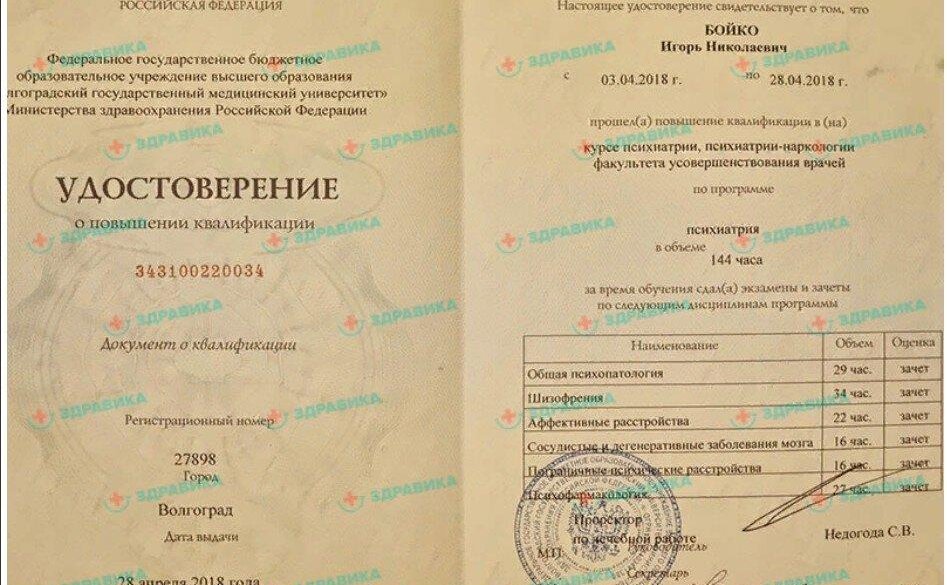 РОССИЙСКАЯ ФЕДЕРАЦИЯ
Федеральное государственное бюджетное
образовательное учреждение высшего образования
лгоградский государственный медицинский университет»
Министерства здравоохранения Российской Федерации
УДОСТОВЕРЕНИЕ
о повышении квалификации
343100220034
Документ о квалификации
Регистрационный номер
27898
Город
Волгоград
Дата выдачи
28 апреля 2018 года
Настоящее удостоверение свидетельствует о том, что
БОЙКО
Игорь Николаевич
с 03.04.2018 г. по 28.04.2018 г.
прошел(а) повышение квалификации в (на)
курсе психиатрии, психиатрии-наркологии
факультета усовершенствования врачей
по программе
психиатрия
в объеме
144 часа
за время обучения сдал(а) экзамены и зачеты
по следующим дисциплинам программы
Наименование Объем Оценка
Общая психопатология 29 час. зачет
Шизофрения 34 час. зачет
Аффективные расстройства 22 час. зачет
Сосудистые и дегенеративные заболевания мозга 16 час. зачет
Пограничные психические расстройства 16 час. зачет
Психофармакология 27 час. зачет
Проректор
по лечебной работе
Недогода С.В.
М.П.
Руководитель
Секретарь
ЗДРАВИКА